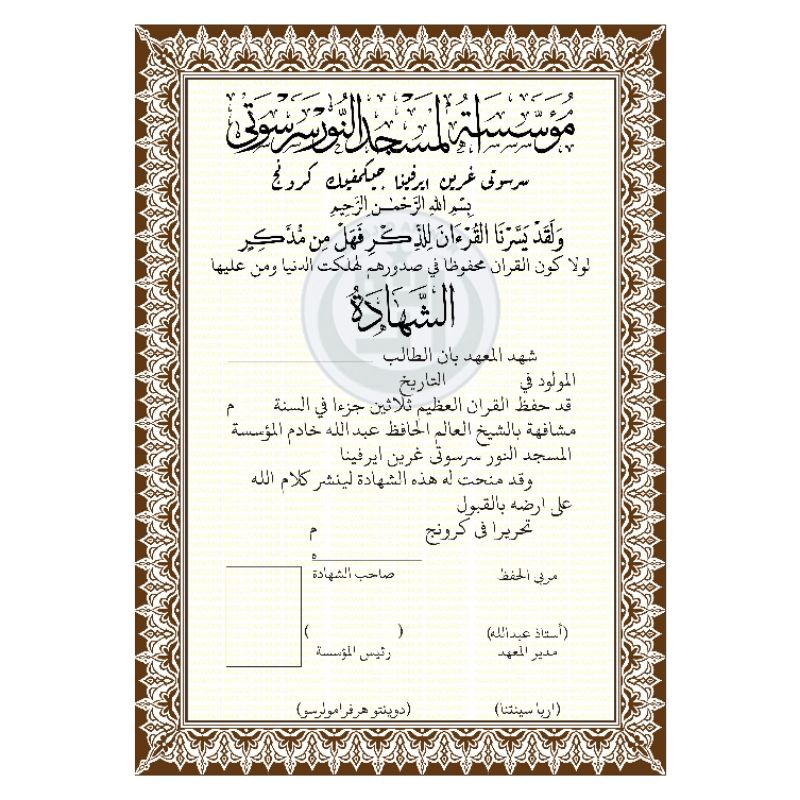 مُؤَسَّسَةُ الْمَسْجِدِ النُّورِ سَرَسْوَتِي
سرسوتى غرين ايرفينا جيكمفيك كرونج
بِسْمِ اللهِ الرَّحْمٰنِ الرَّحِيْمِ
وَلَقَدْ يَسَّرْنَا الْقُرْءَانَ لِلذِّكْرِ فَهَلْ مِن مُّدَّكِرٍ
لولا كون القران محفوظا في صدورهم لهلكت الدنيا ومن عليها
الشَّهَادَةُ
شهد المعهد بان الطالب
المولود في التاريخ
قد حفظ القران العظيم ثلاثين جزءا في السنة م
مشافهة بالشيخ العالم الحافظ عبد الله خادم المؤسسة
المسجد النور سرسوتى غرين ايرفينا
وقد منحت له هذه الشهادة لينشر كلام الله
على ارضه بالقبول
تحريرا في كرونج م
ه
مربي الحفظ صاحب الشهادة
(أستاذ عبدالله) ( )
مدير المعهد رئيس المؤسسة
(اريا سينتنا) (دوينتو هرفرامولرسو)